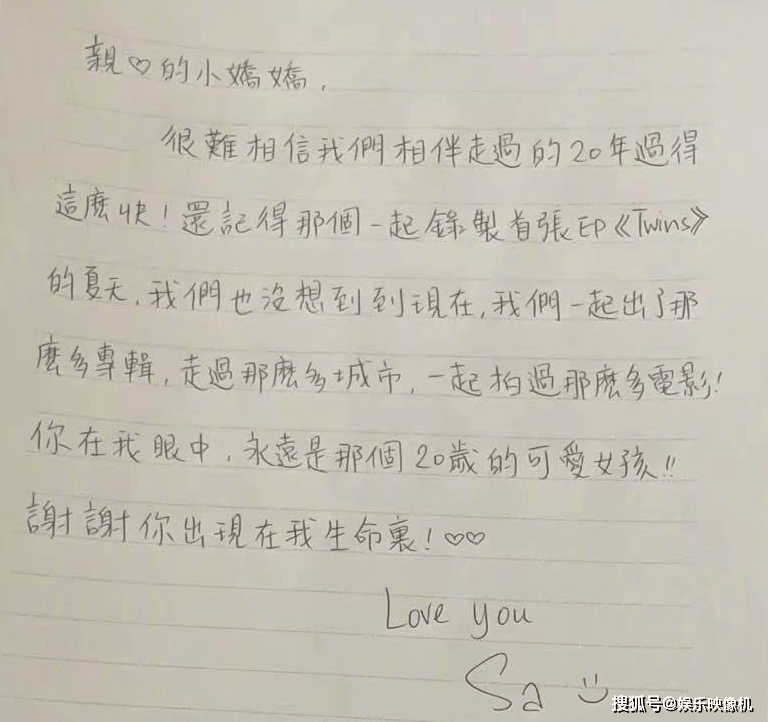 親♡的小嬌嬌,
很難相信我們相伴走過的20年過得
這麼快!還記得那個一起錄製首張EP《Twins》
的夏天,我們也沒想到到現在,我們一起出了那
麼多專輯,走過那麼多城市,一起拍過那麼多電影!
你在我眼中,永遠是那個20歲的可愛女孩!!
謝謝你出現在我生命裏!♡♡
Love you
Sa
搜狐号@娱乐映像机